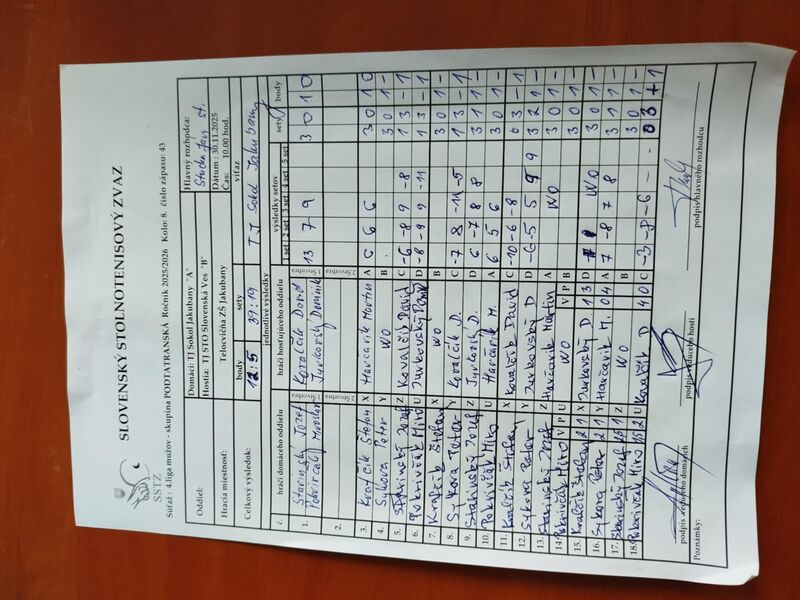 SSTZ
SLOVENSKÝ STOLNOTENISOVÝ ZVAZ
Súťaž : 4.liga mužov - skupina PODTATRANSKÁ Ročník 2025/2026 Kolo: 8. číslo zápasu: 43
Oddiel: Domáci: TJ Sokol Jakubany "A" Hlavný rozhodca:
Hostia: TJ STO Slovenská Ves "B" st.
Hracia miestnosť: Telocvičňa ZŠ Jakubany Dátum : 30.11.2025
Čas: 10.00 hod.
Celkový výsledok: body sety víťaz
12:5 39:19 TJ Sokol Jakubany
jednotlivé výsledky
č. hráči domáceho oddielu hráči hosťujúceho oddielu výsledky setov sety body
1.set 2 set 3 set 4 set 5 set
1. Starinský Jozef Kovalčík David 13 7 9 3 0 1 0
Pokrivčák Miroslav Jurkovský Dominik
2.
3. Krafčík Štefan X Harčarik Martin A 6 6 6 3 0 1 0
4. Sýkora Peter Y WO B 3 0 1 -
5. Starinský Jozef Z Kovalčík David C -6 -8 9 -8 1 3 - 1
6. Pokrivčák Miro U Jurkovský D -8 -9 9 -11 1 3 - 1
7. Krafčík Štefan Y WO B 3 0 1 -
8. Sýkora Peter Y Kovalčík D. C -7 8 -11 -5 1 3 - 1
9. Starinský Jozef Z Jurkovský D. D 6 -7 8 8 3 1 1 -
10. Pokrivčák Miro U Harčarik M. A 6 5 6 3 0 1 -
11. Krafčík Štefan X Kovalčík David C -10 -6 -8 0 3 - 1
12. Sýkora Peter Y Jurkovský D D -6 -5 5 9 9 3 2 1 -
13. Starinský Jozef Z Harčarik Martin A WO 3 0 1 -
14. Pokrivčák Miro U WO B 3 0 1 -
15. Krafčík Štefan 2 1 X Jurkovský D 1 3 D WO 3 0 1 -
16. Sýkora Peter 2 1 Y Harčarik M. 0 4 A 7 -8 7 8 3 1 1 -
17. Starinský Jozef Z WO B 3 0 1 -
18. Pokrivčák Miro U Kovalčík D 4 0 C -3 -8 -6 - - 0 3 - 1
podpis vedúceho domácich podpis vedúceho hostí podpis hlavného rozhodcu
Poznámky: